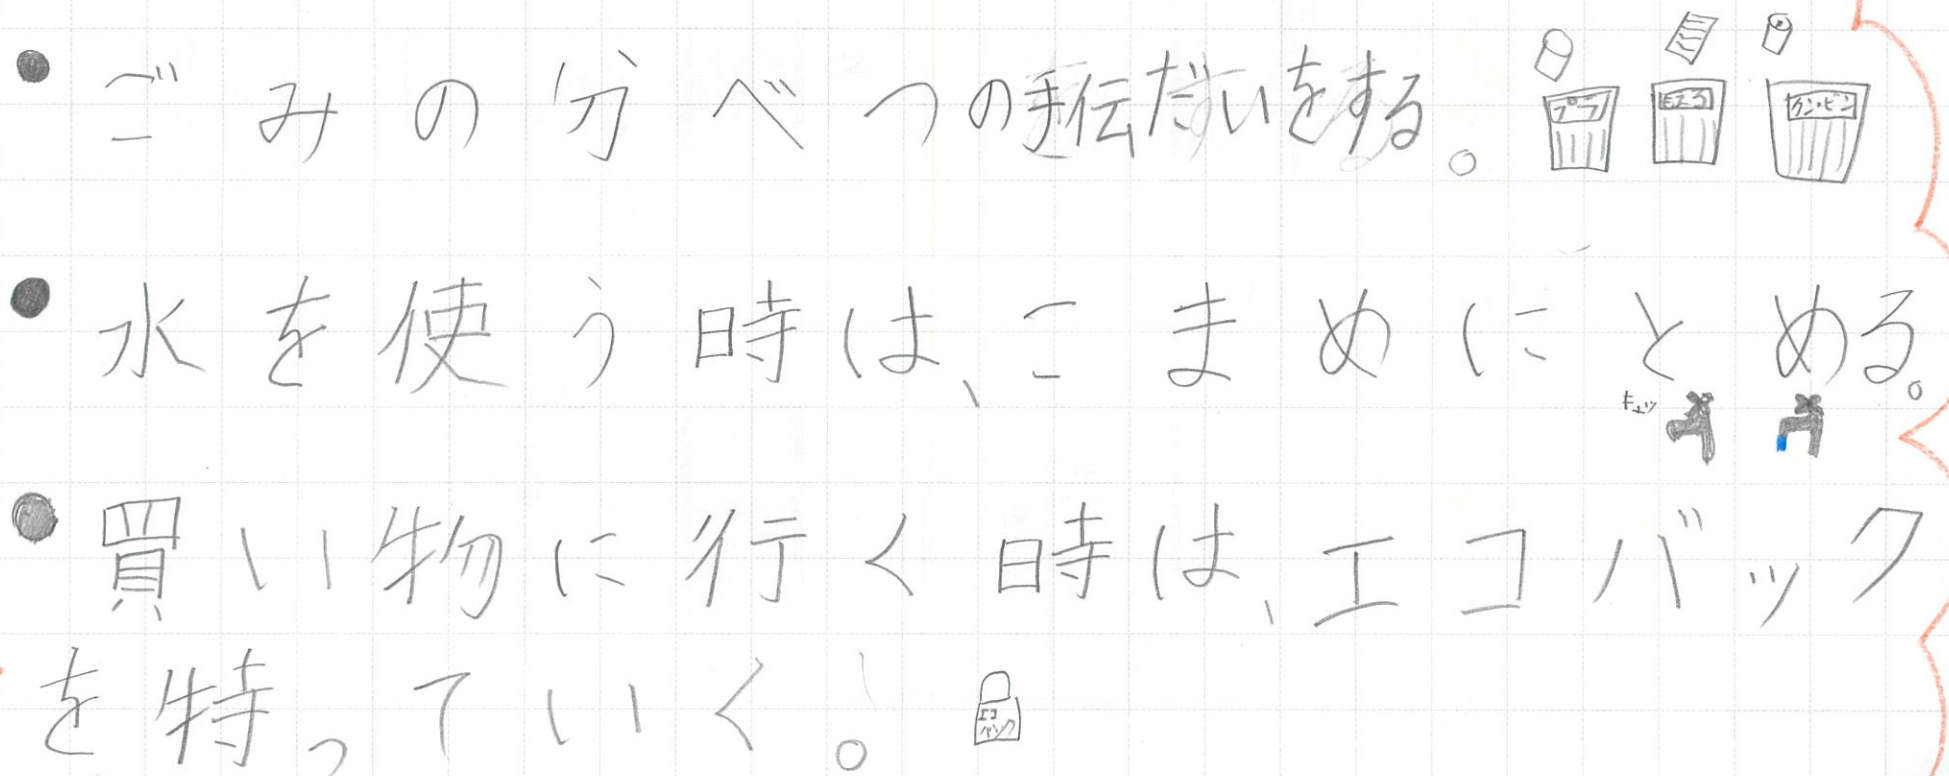 ● ごみの分べつの手伝だいをする。
プラ モエる カン・ビン
● 水を使う時は、こまめにとめる。
キュッ
● 買い物に行く時は、エコバック
を特っていく。
エコ
バック